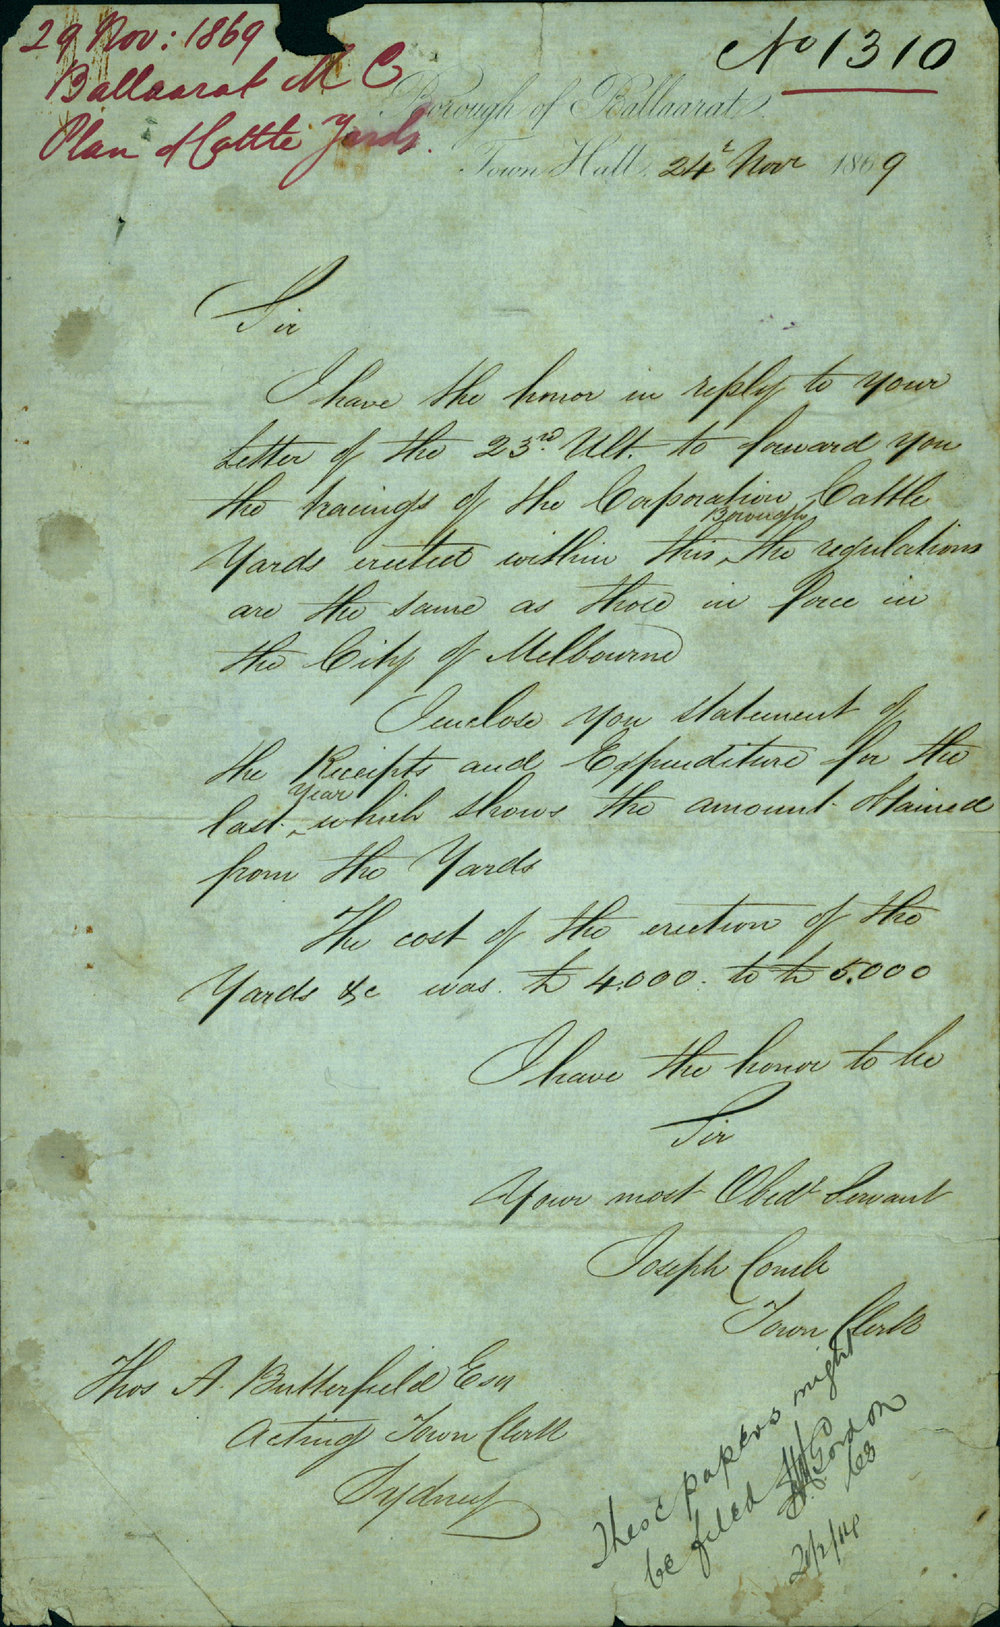 29 Nov: 1869
Ballaarat M C
Plan of Cattle Yards.
No 1310
Borough of Ballaarat.
Town Hall, 24th Novr 1869
Sir
I have the honor in reply to your
Letter of the 23rd. Ult. to forward you
the tracings of the Corporation Cattle
Borough
Yards erected within this ^ the regulations
are the same as those in force in
the City of Melbourne
I enclose you statement of
the Receipts and Expenditure for the
Year
last ^ which shows the amount obtained
from the Yards
The cost of the erection of the
Yards &c was £4.000. to £5.000
I have the honor to be
Sir
Your most Obedt Servant
Joseph Comb
Town Clerk
Thos A. Butterfield Esq
Acting Town Clerk
Sydney
These papers might
be filed
Gordon